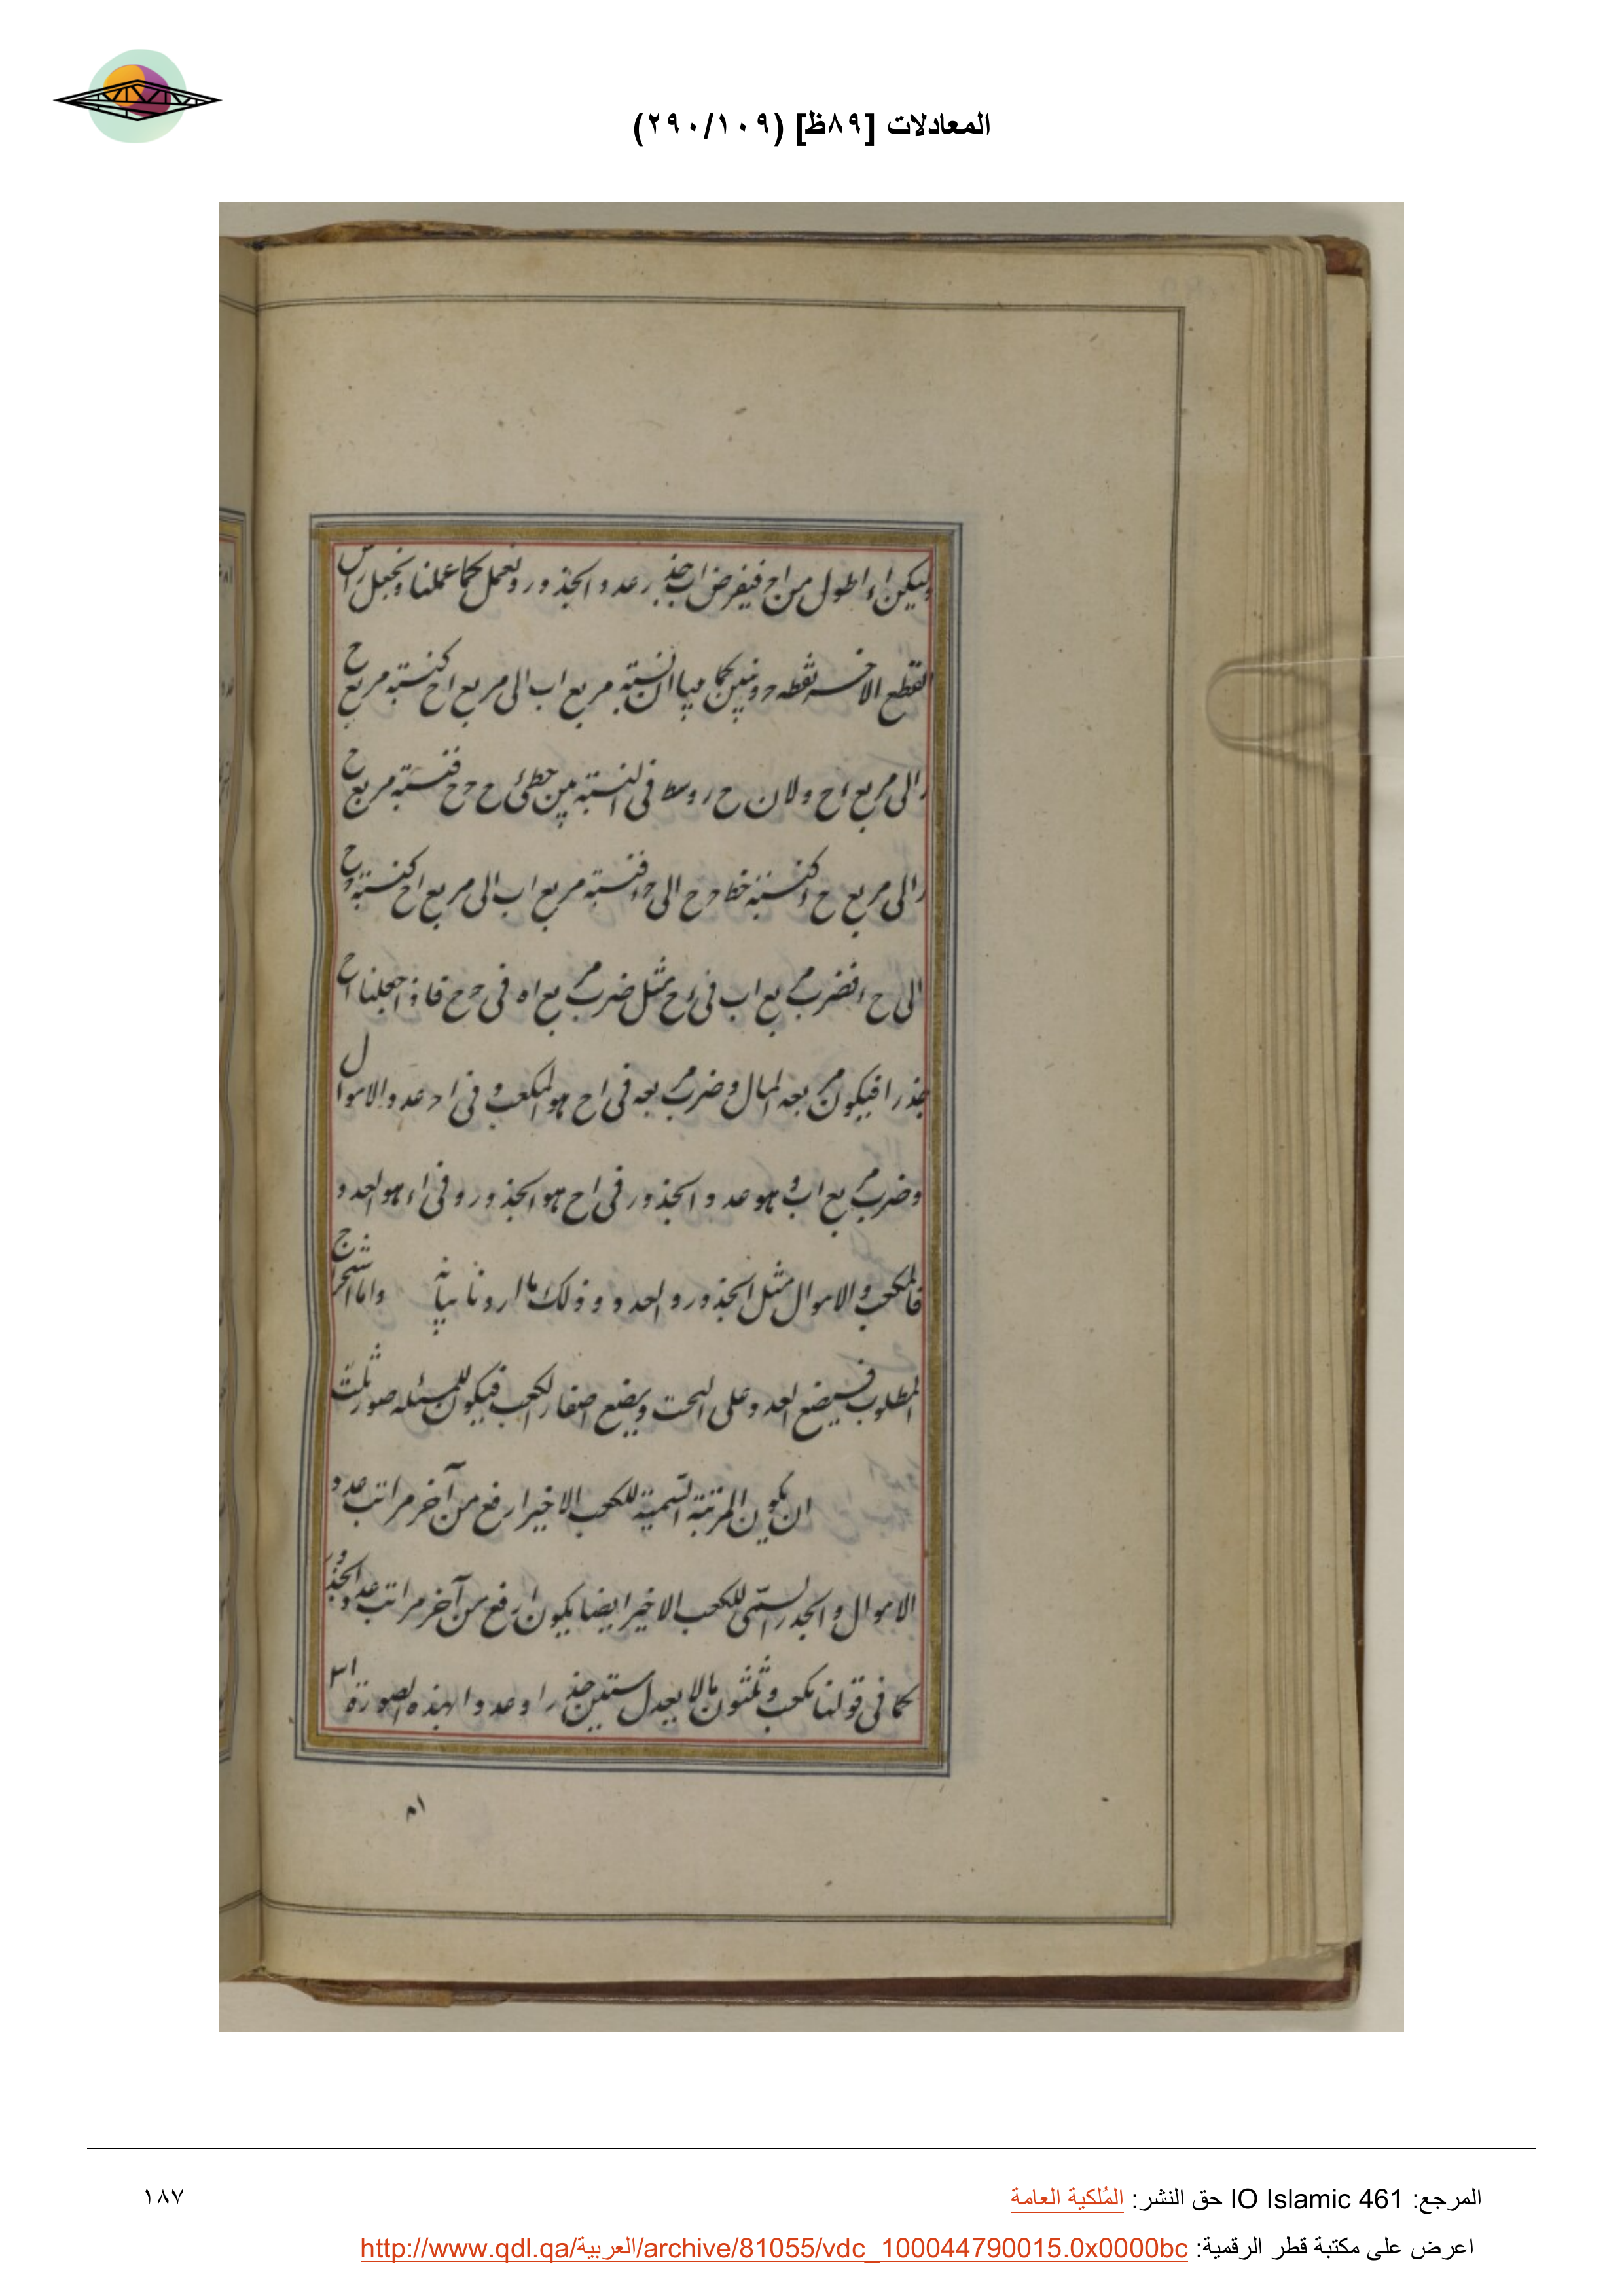 المعادلات [٨٩ظ] (٢٩٠/١٠٩)
وليكن اء اطول من اح فيفرض اب جذر عدد الجذور ونعمل كما عملنا ونجعل راس
القطع الاخر نقطة د ونبين كما بينا ان نسبة مربع اب الى مربع اح كنسبة مربع ح
ر الى مربع اح ولان ح ر وسط فى النسبة بين خطى ء ح ح فنسبة مربع ح
ر الى مربع ح ا كنسبة خط ح الى ح ا فنسبة مربع اب الى مربع اح كنسبة ح
الى ح ء فضرب مربع اب فى ء ح مثل ضرب مربع اه فى ح ح فاذا جعلنا اح
جذرا فيكون مربعه المال وضرب مربعه فى اح هو المكعب وفى اد عدد الاموال
وضرب مربع اب وهو عدد الجذور فى اح هو الجذور وفى اء هو العدد
فالمكعب والاموال مثل الجذور والعدد وذلك ما اردنا بيانه واما استخراج
المطلوب فيضع العدد على التخت ويضع اصفار الكعب فيكون للمسئلة صور ثلث
ان يكون المرتبة السمية للكعب الاخير ارفع من آخر مراتب عدد
الاموال والجذر السمى للكعب الاخير ايضا يكون ارفع من آخر مراتب عدد الجذور
كما فى قولنا مكعب وثلثون مالا يعدل ستين جذرا وعددا بهذه الصورة ٣١
المرجع: IO Islamic 461 حق النشر: المُلكية العامة
١٨٧
اعرض على مكتبة قطر الرقمية: http://www.qdl.qa/العربية/archive/81055/vdc_100044790015.0x0000bc